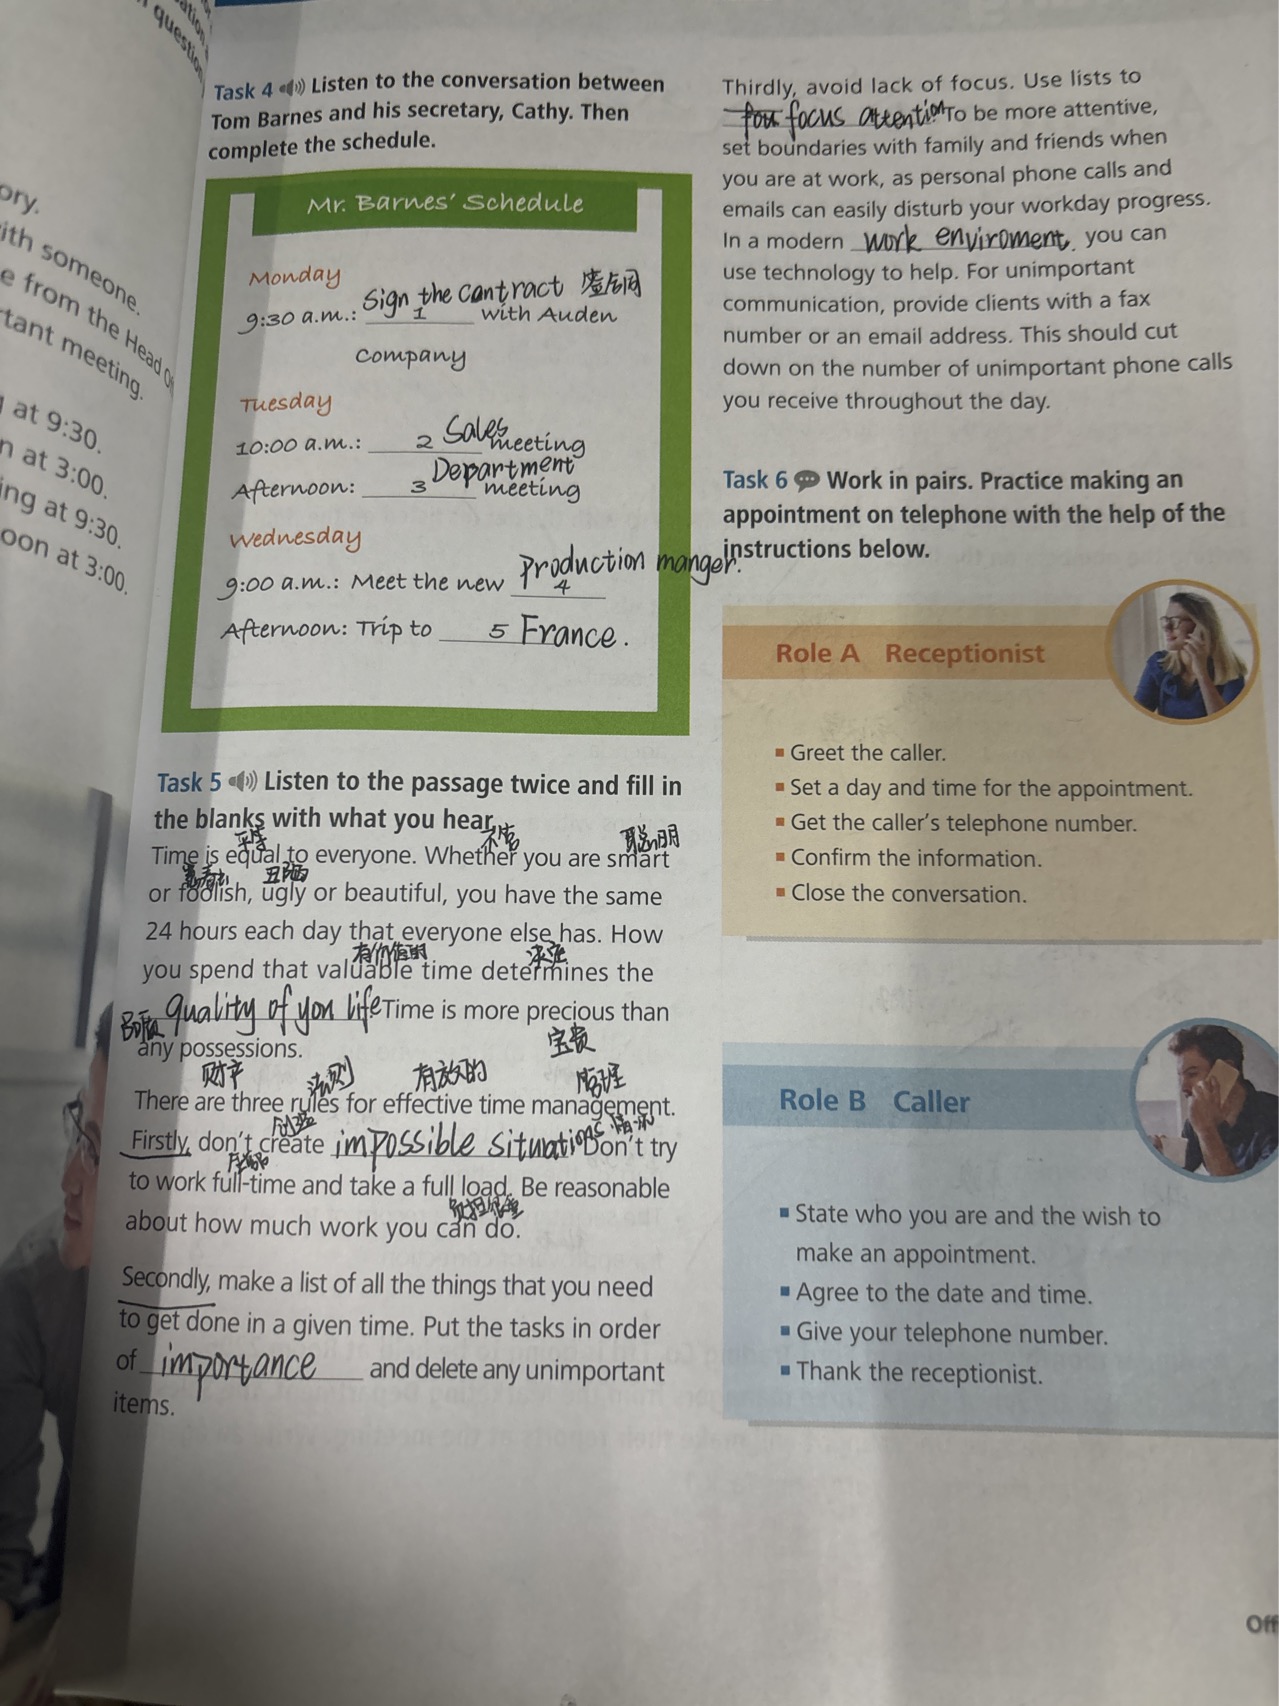 question
ory.
ith someone.
e from the Head Of
rtant meeting.
at 9:30.
n at 3:00.
ing at 9:30.
oon at 3:00.
Task 4 Listen to the conversation between
Tom Barnes and his secretary, Cathy. Then
complete the schedule.
Mr. Barnes' Schedule
Monday
Sign the contract
9:30 a.m.: 1 with Auden
Company
Tuesday
10:00 a.m.: 2 Sales meeting
Afternoon: 3 Department meeting
Wednesday
9:00 a.m.: Meet the new 4 Production manger.
Afternoon: Trip to 5 France.
Task 5 Listen to the passage twice and fill in
the blanks with what you hear.
平等 聪明
Time is equal to everyone. Whether you are smart
丑陋
or foolish, ugly or beautiful, you have the same
24 hours each day that everyone else has. How
有价值的 决定
you spend that valuable time determines the
quality of you life Time is more precious than
宝贵
any possessions.
财产 法则 有效的 管理
There are three rules for effective time management.
Firstly, don't create impossible situations Don't try
to work full-time and take a full load. Be reasonable
about how much work you can do.
Secondly, make a list of all the things that you need
to get done in a given time. Put the tasks in order
of importance and delete any unimportant
items.
Thirdly, avoid lack of focus. Use lists to
focus attention To be more attentive,
set boundaries with family and friends when
you are at work, as personal phone calls and
emails can easily disturb your workday progress.
In a modern work enviroment, you can
use technology to help. For unimportant
communication, provide clients with a fax
number or an email address. This should cut
down on the number of unimportant phone calls
you receive throughout the day.
Task 6 Work in pairs. Practice making an
appointment on telephone with the help of the
instructions below.
Role A Receptionist
Greet the caller.
Set a day and time for the appointment.
Get the caller's telephone number.
Confirm the information.
Close the conversation.
Role B Caller
State who you are and the wish to
make an appointment.
Agree to the date and time.
Give your telephone number.
Thank the receptionist.
Off